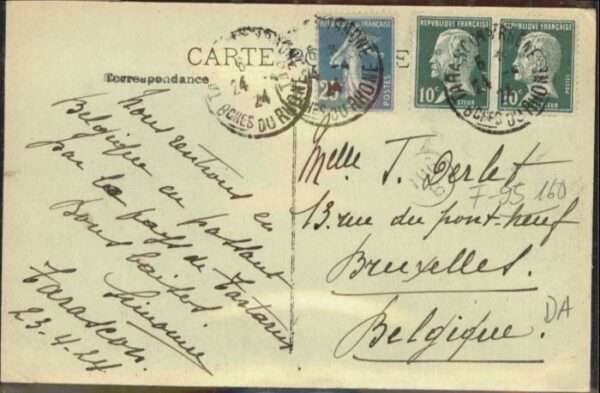 CARTE
Correspondance
RÉPUBLIQUE FRANÇAISE
25c
POSTES
RÉPUBLIQUE FRANÇAISE
10c
POSTES
RÉPUBLIQUE FRANÇAISE
10c
POSTES
TARASCON-S-RHONE
24
BCHES DU RHONE
Nous rentrons en
Belgique en passant
par le pays de Tartarin
Bons baisers
Simonne
Tarascon.
23-4-24
Melle T. Derlet
13. rue du pont-neuf
Bruxelles.
Belgique.
F-95 160
DA